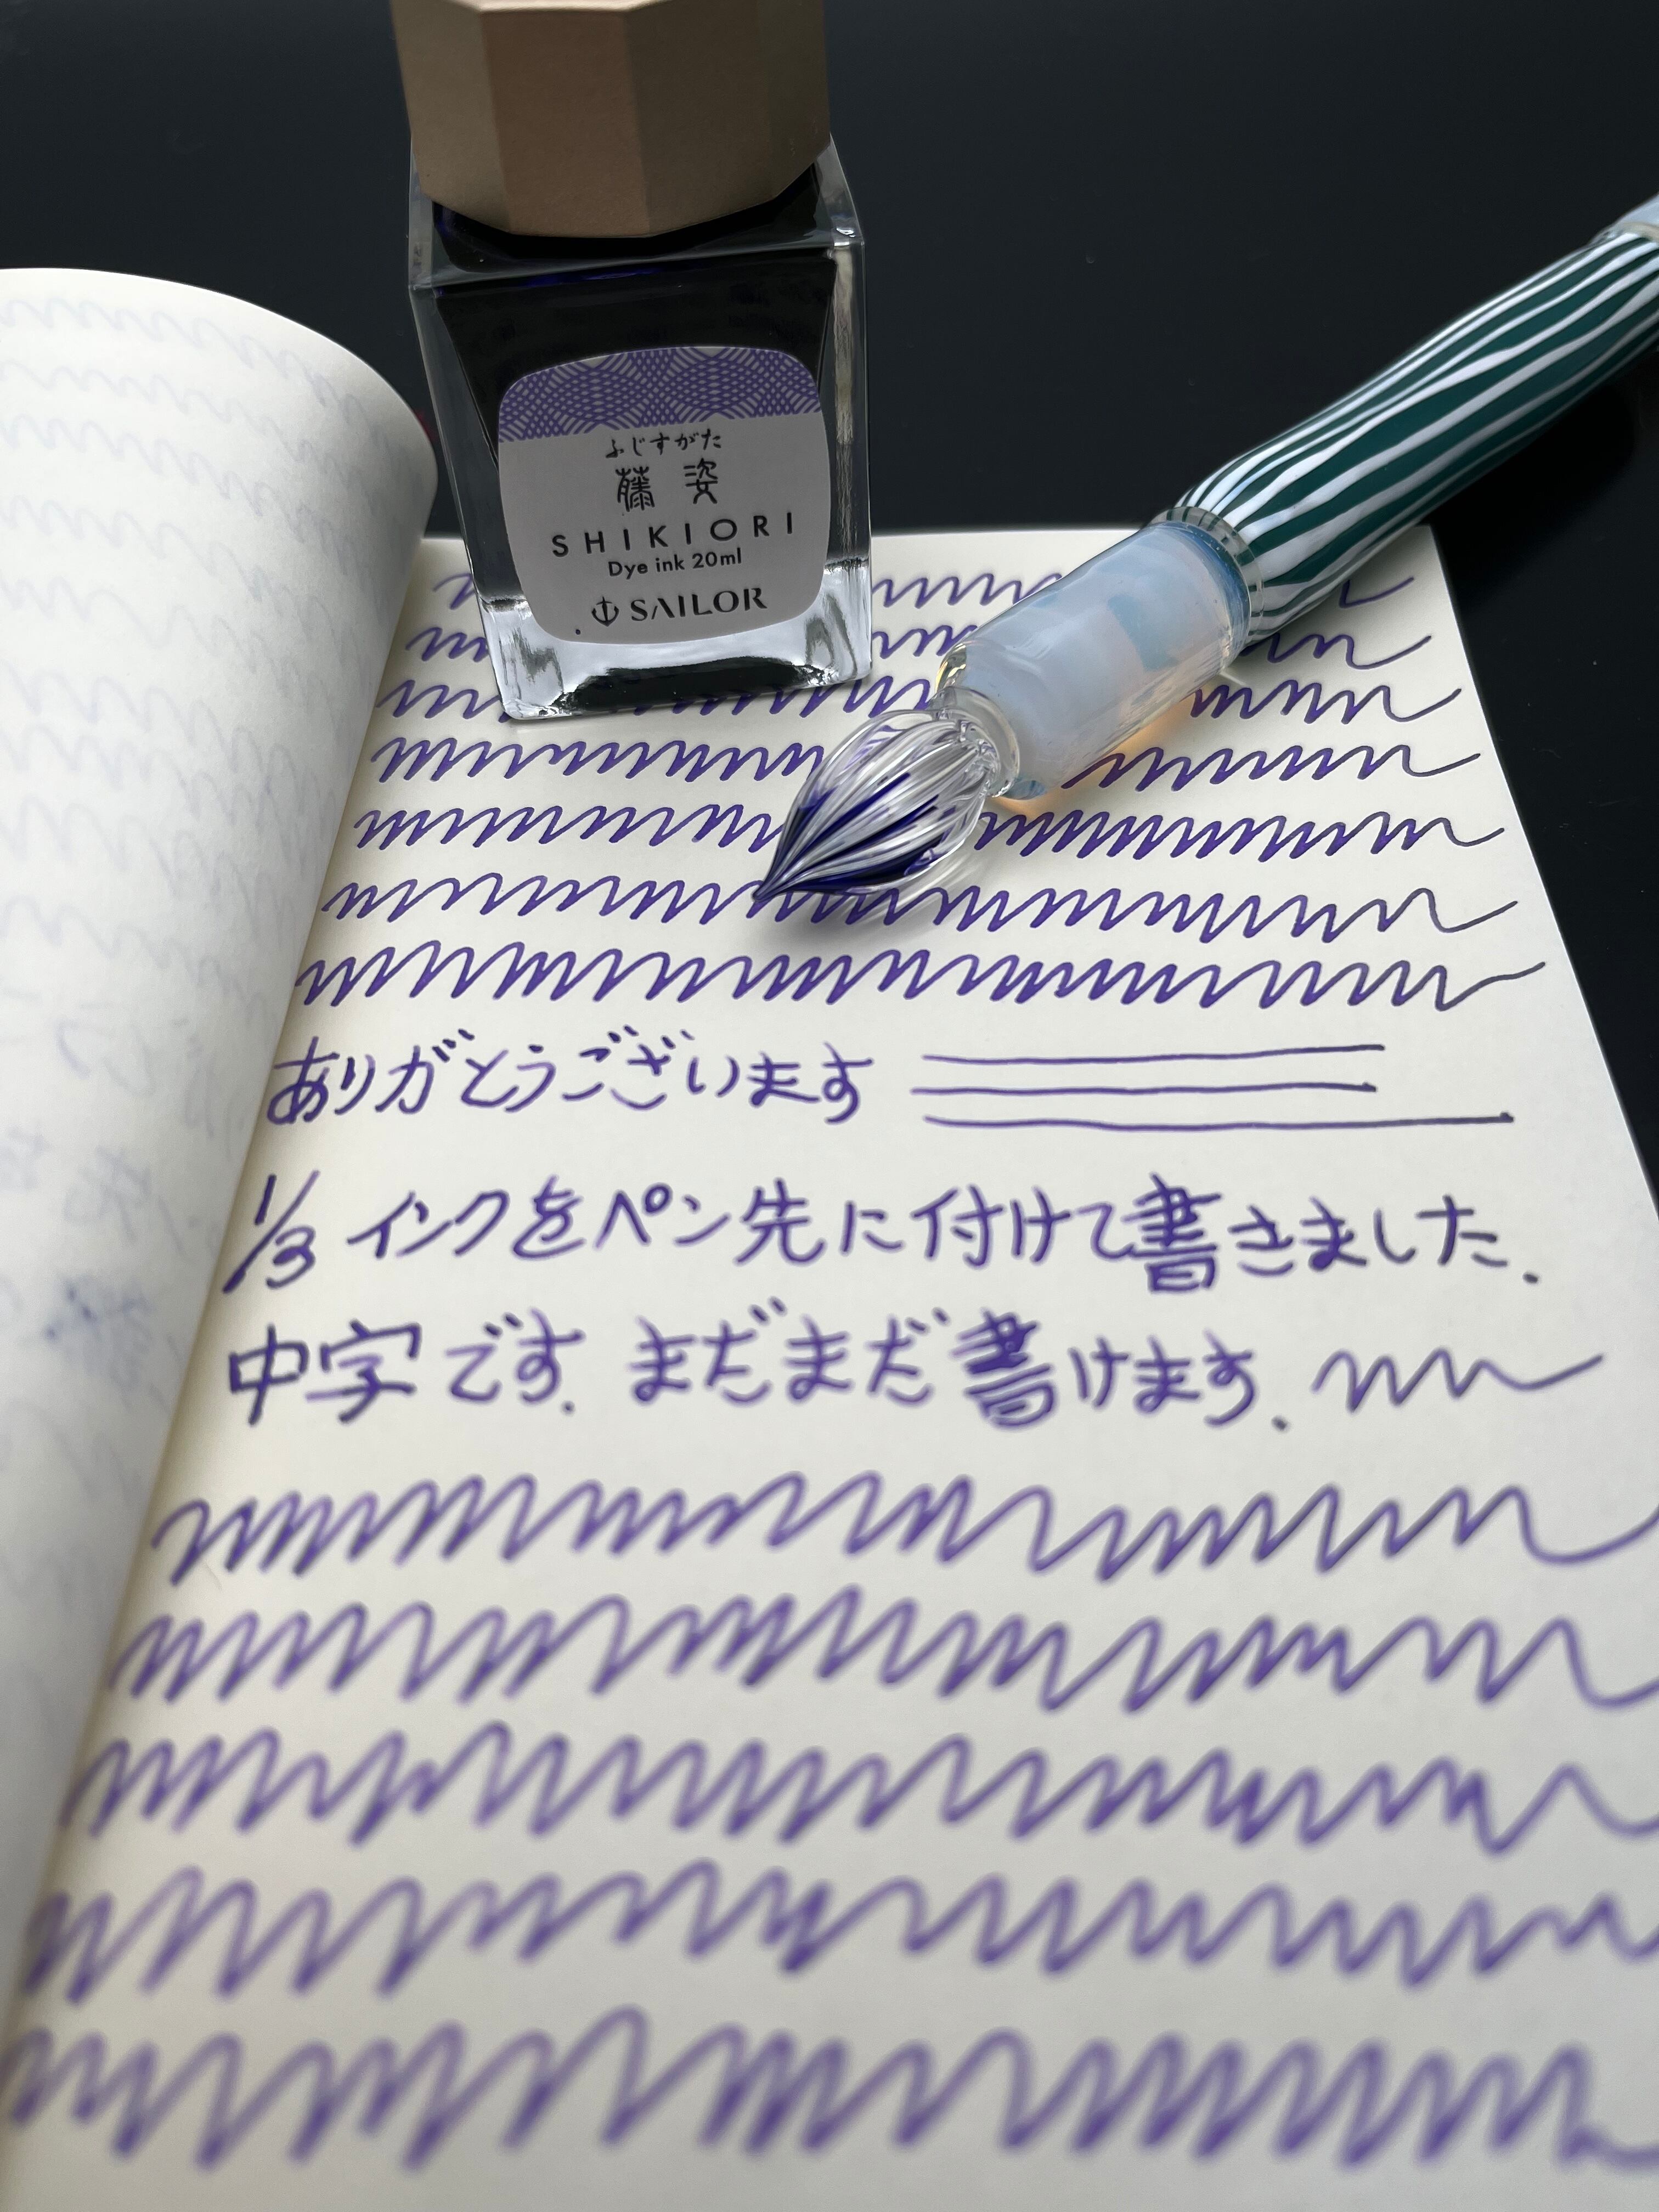 ふじすがた
藤姿
SHIKIORI
Dye ink 20ml
SAILOR
ありがとうございます
1/3 インクをペン先に付けて書きました.
中字です. まだまだ書けます.